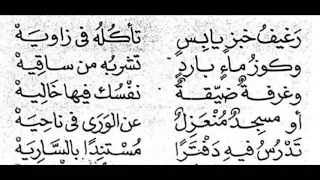 رَغيفُ خبزٍ يابِسٍ تأكلُهُ في زاوِيَهْ
وكوزُ ماءٍ باردٍ تشربُه من ساقِيَهْ
وغرفةٌ ضيّقةٌ نفسُك فيها خاليَهْ
أو مسجدٌ مُنْعَزِلٌ عن الوَرَى في ناحِيَهْ
تَدْرُسُ فيهِ دَفْتَرًا مُسْتَنِدًا بالسَّارِيَهْ